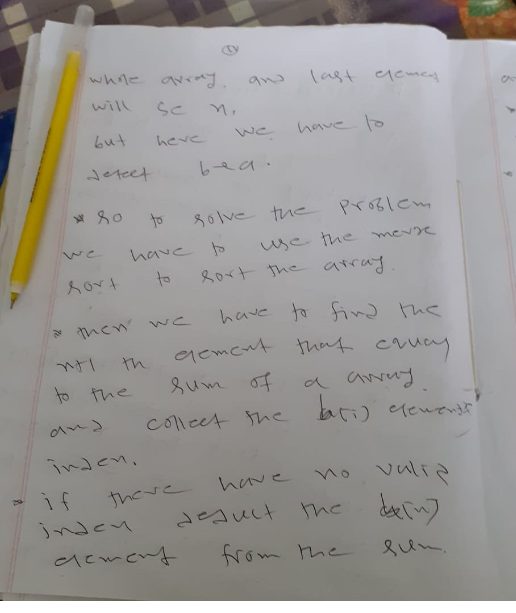 whole array, and last element
will be n,
but here we have to
detect
* so to solve the problem
we have to use the merge
sort to sort the array.
* then we have to find the
n+1 th element that equal
to the sum of a array.
and collect the b[i] elements
index.
* if there have no valid
index deduct the b[n]
element from the sum.